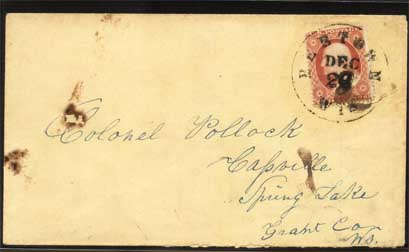 DEC
WIS
Colonel Pollock
Cassville
Spring Lake
Grant Co
Ws.